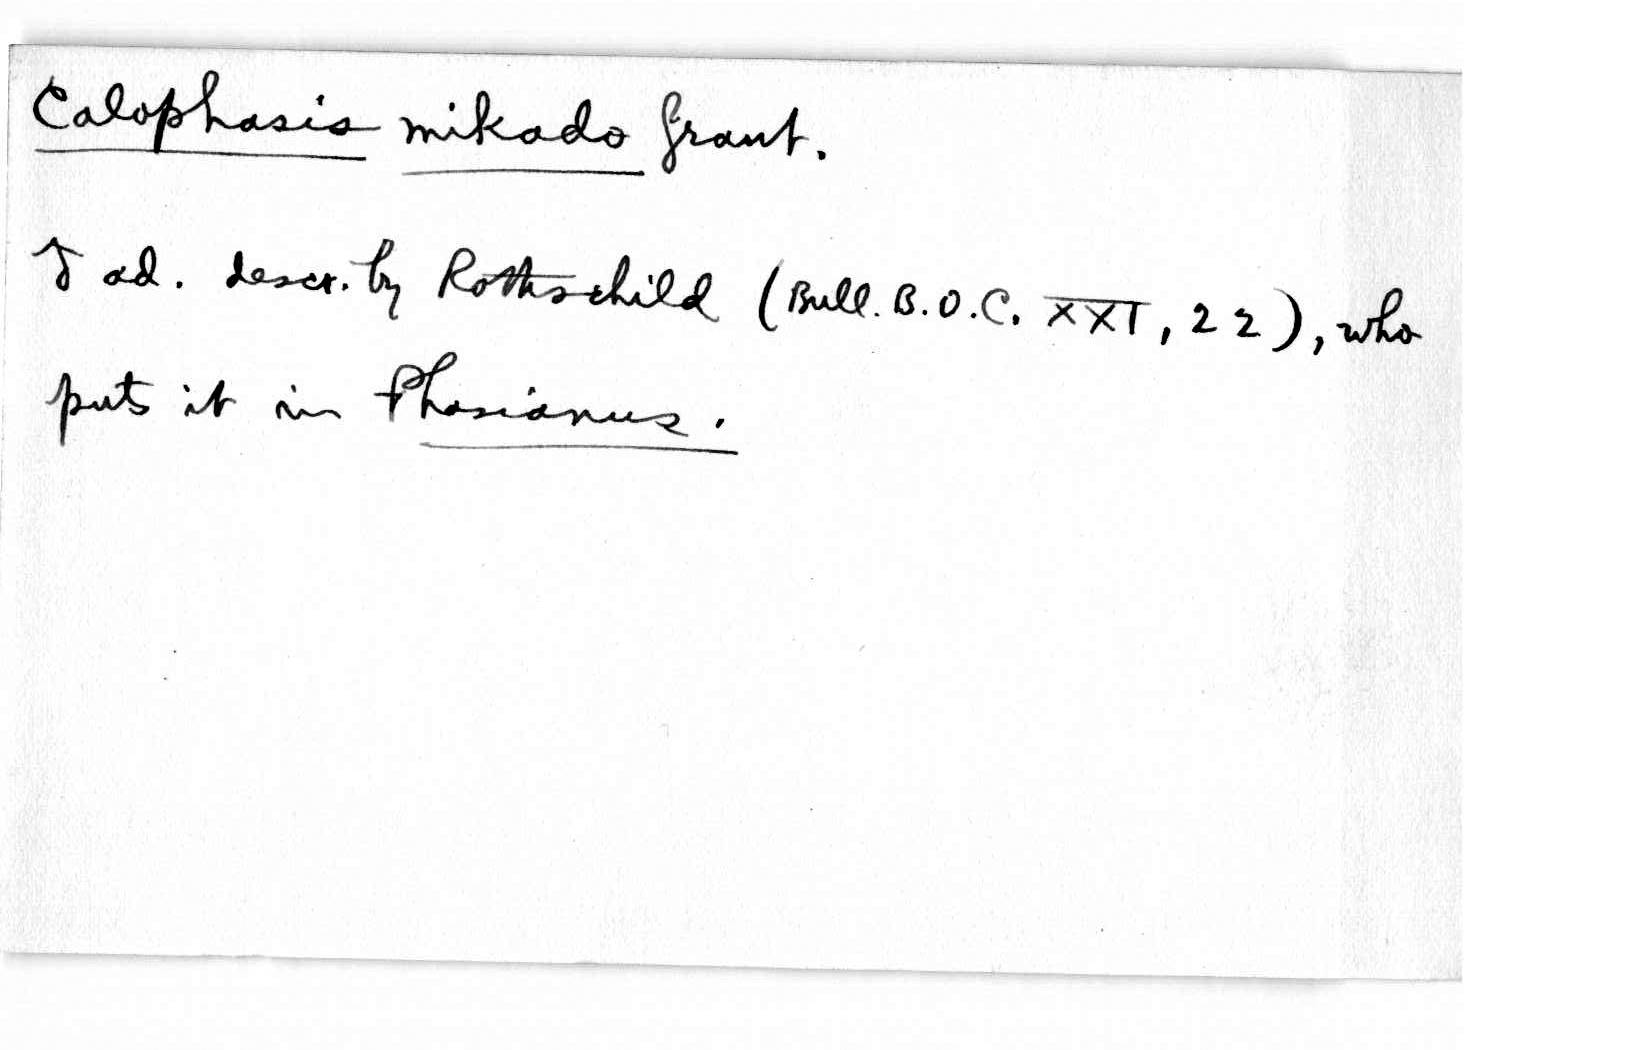 Calophasis mikado Grant.
♂ ad. descr. by Rothschild (Bull. B.O.C. XXI, 22), who
puts it in Phasianus.